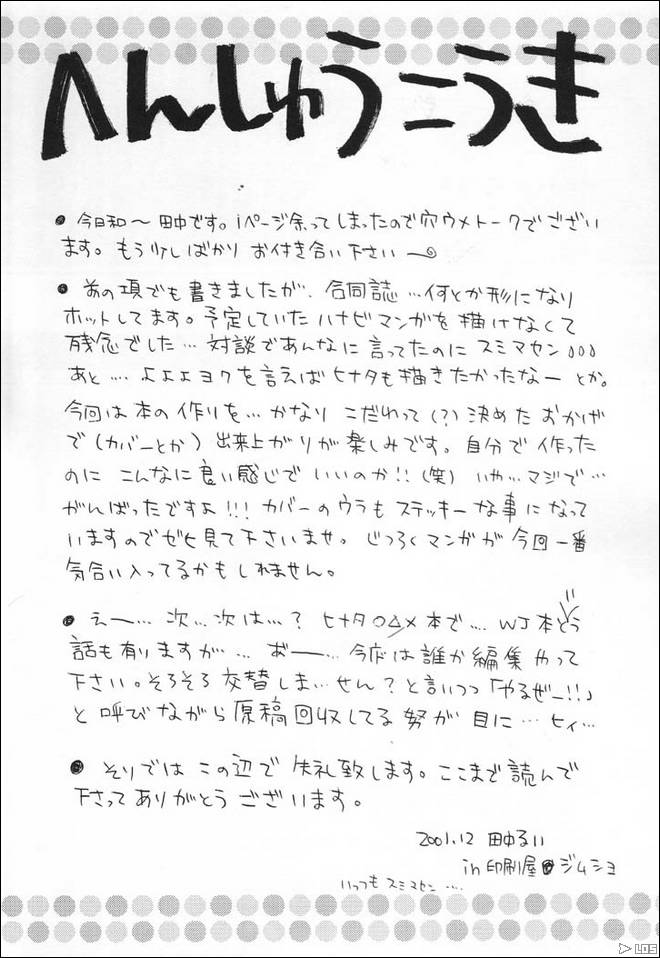 へんしゅうこうき
● 今日和〜 田中です。1ページ余ってしまったので穴ウメトークでござい
ます。もう少しばかり お付き合い下さい〜
● あの項でも書きましたが、合同誌…何とか形になり
ホットしてます。予定していたハナビマンガを描けなくて
残念でした… 対談であんなに言ってたのに スミマセン
あと…. よよよヨクを言えばヒナタも描きたかったなー とか。
今回は本の作りを… かなり こだわって(?) 決めた おかげ
で (カバーとか) 出来上がりが楽しみです。自分で作った
のに こんなに良い感じで いいのか!! (笑) いや…マジで…
がんばったですよ!!! カバーのウラも ステッキーな事になって
いますのでゼヒ見て下さいませ。じつろくマンガが 今回一番
気合い入ってるかもしれません。
● えー…. 次…次は…? ヒナタ○△×本で…. WJ本とう
話も有りますが … あー…. 今度は誰か編集やって
下さい。そろそろ交替しま…せん? と言いつつ「やるぜー!!」
と呼びながら原稿回収してる 努が 目に… ヒィ…
● そりでは この辺で 失礼致します。ここまで読んで
下さって ありがとう ございます。
2001.12 田中るい
in 印刷屋 ジムショ
いつも スミマセン ….
LDS